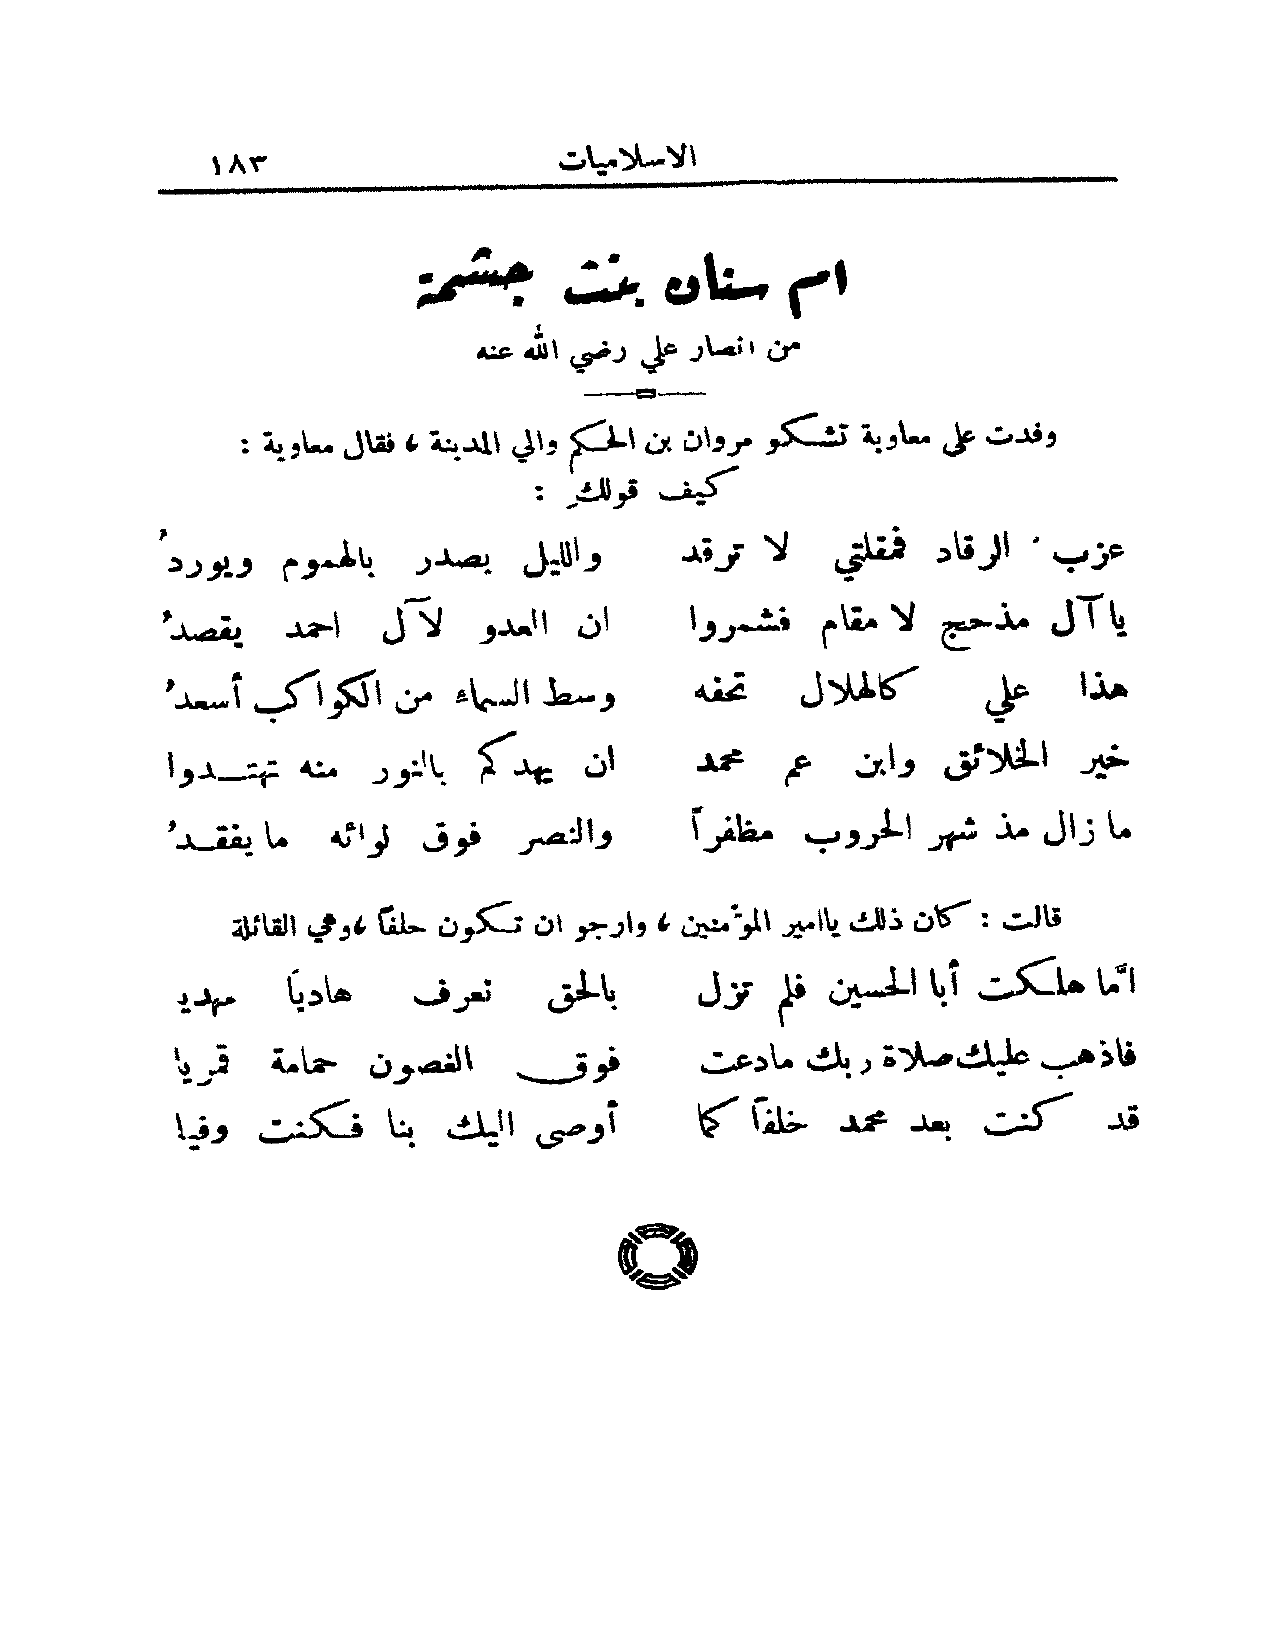 الاسلاميات ١٨٣
ام سنان بنت جشمة
من انصار علي رضي الله عنه
وفدت على معاوية تشكو مروان بن الحكم والي المدينة ، فقال معاوية :
كيف قولكِ :
عزب الرقاد فمقلتي لا ترقد والليل يصدر بالهموم ويوردُ
يا آل مذحج لا مقام فشمروا ان العدو لآل احمد يقصدُ
هذا علي كالهلال تحفه وسط السماء من الكواكب أسعدُ
خير الخلائق وابن عم محمد ان يهدكم بالنور منه تهتدوا
ما زال مذ شهر الحروب مظفراً والنصر فوق لوائه ما يفقدُ
قالت : كان ذلك ياامير المؤمنين ، وارجو ان تكون خلفاً ، وهي القائلة
امّا هلكت أبا الحسين فلم تزل بالحق تعرف هادياً مهديـ
فاذهب عليك صلاة ربك مادعت فوق الغصون حمامة قمريا
قد كنت بعد محمد خلفاً كما أوصى اليك بنا فكنت وفيا